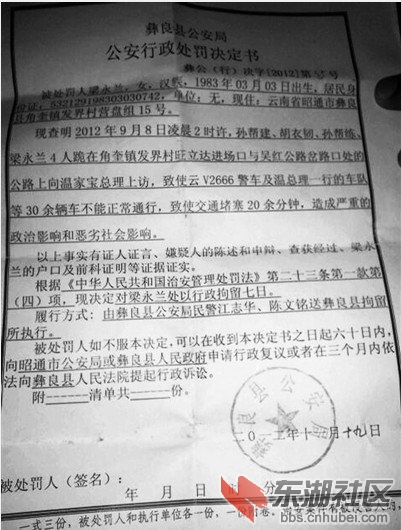 彝良县公安局
公安行政处罚决定书
彝公（行）决字[2012]第 号
被处罚人梁永兰，女，汉族，1983年03月03日出生，居民身
份证，532129198303030742，单位：无，现住：云南省昭通市彝良
县角奎镇发界村营盘组15号。
现查明2012年9月8日凌晨2时许，孙帮建、胡衣韧、孙帮练、
梁永兰4人跪在角奎镇发界村旺立达进场口与吴红公路岔路口处的
公路上向温家宝总理上访，致使云V2666警车及温总理一行的车队
等30余辆车不能正常通行，致使交通堵塞20余分钟，造成严重的
政治影响和恶劣社会影响。
以上事实有证人证言、嫌疑人的陈述和申辩、查获经过、梁永
兰的户口及前科证明等证据证实。
根据《中华人民共和国治安管理处罚法》第二十三条第一款第
（四）项，现决定对梁永兰处以行政拘留七日。
履行方式：由彝良县公安局民警江志华、陈文铭送彝良县拘留
所执行。
被处罚人如不服本决定，可以在收到本决定书之日起六十日内，
向昭通市公安局或彝良县人民政府申请行政复议或者在三个月内依
法向彝良县人民法院提起行政诉讼。
附------清单共------份。
彝良县公安局
二〇一二年十一月十九日
被处罚人（签名）：
年 月 日 时 分
一式三份，被处罚人和执行单位各一份，一份附卷。
东湖社区
bbs.cnhubei.com